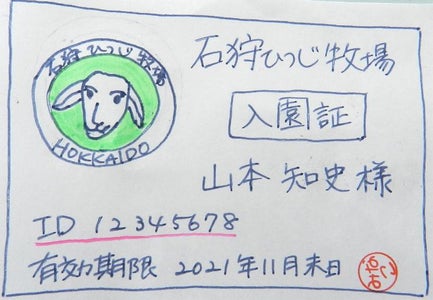 石狩ひつじ牧場
HOKKAIDO
石狩ひつじ牧場
入園証
山本 知史様
ID 12345678
有効期限 2021年11月末日